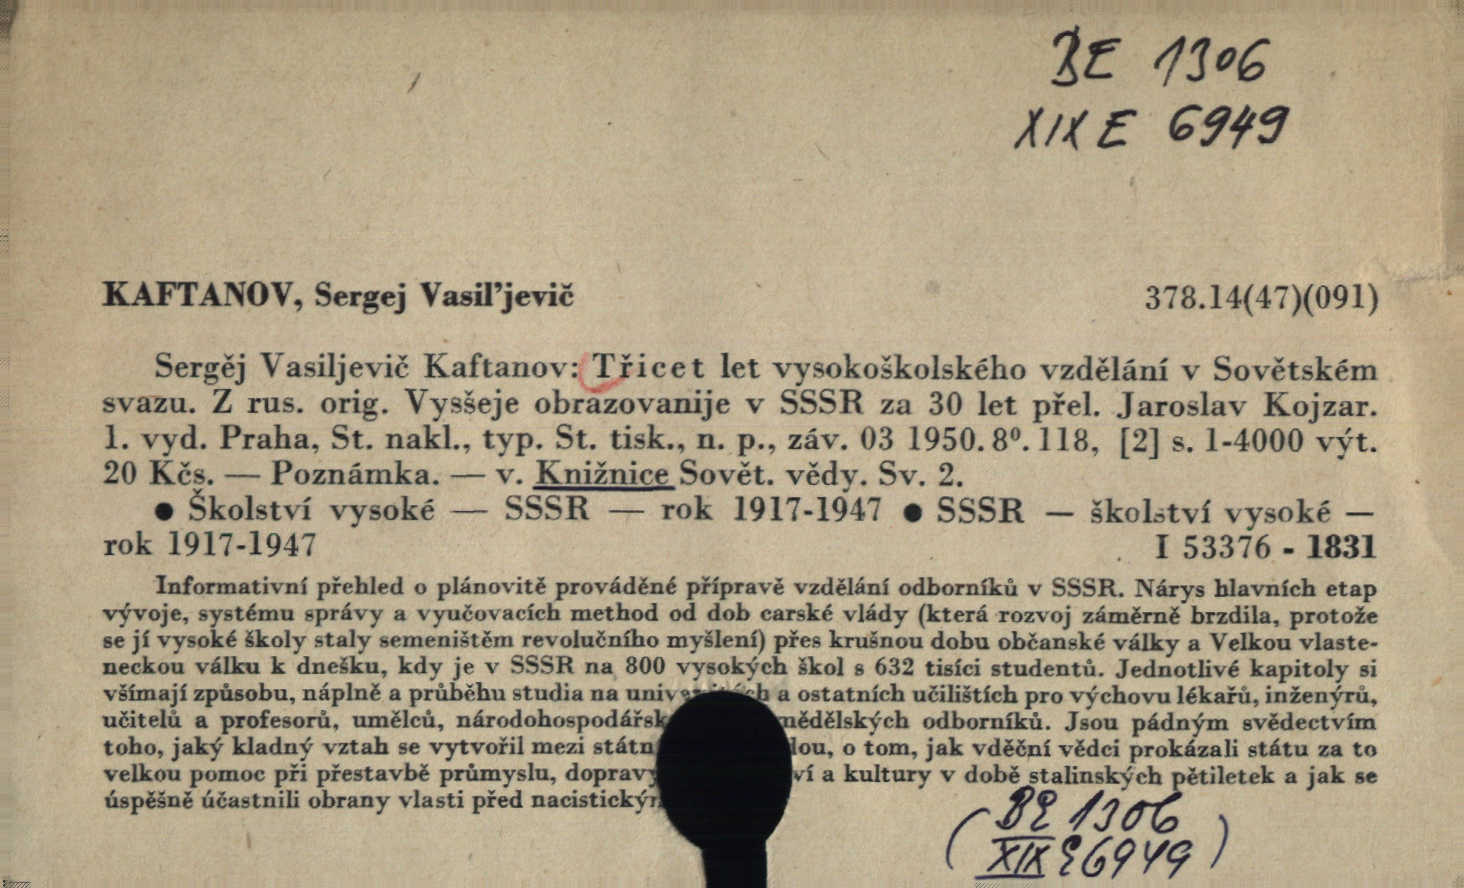 BE 1306
XIX E 6949
KAFTANOV, Sergej Vasil'jevič 378.14(47)(091)
Sergěj Vasiljevič Kaftanov: Třicet let vysokoškolského vzdělání v Sovětském
svazu. Z rus. orig. Vysšeje obrazovanije v SSSR za 30 let přel. Jaroslav Kojzar.
1. vyd. Praha, St. nakl., typ. St. tisk., n. p., záv. 03 1950. 8⁰. 118, [2] s. 1-4000 výt.
20 Kčs. — Poznámka. — v. Knižnice Sovět. vědy. Sv. 2.
● Školství vysoké — SSSR — rok 1917-1947 ● SSSR — školství vysoké —
rok 1917-1947 I 53376 - 1831
Informativní přehled o plánovitě prováděné přípravě vzdělání odborníků v SSSR. Nárys hlavních etap
vývoje, systému správy a vyučovacích method od dob carské vlády (která rozvoj záměrně brzdila, protože
se jí vysoké školy staly semeništěm revolučního myšlení) přes krušnou dobu občanské války a Velkou vlaste-
neckou válku k dnešku, kdy je v SSSR na 800 vysokých škol s 632 tisíci studentů. Jednotlivé kapitoly si
všímají způsobu, náplně a průběhu studia na a ostatních učilištích pro výchovu lékařů, inženýrů,
učitelů a profesorů, umělců, odborníků. Jsou pádným svědectvím
toho, jaký kladný vztah se vytvořil mezi o tom, jak vděční vědci prokázali státu za to
velkou pomoc při přestavbě průmyslu, a kultury v době stalinských pětiletek a jak se
úspěšně účastnili obrany vlasti před
(BE 1306
XIX E 6949)